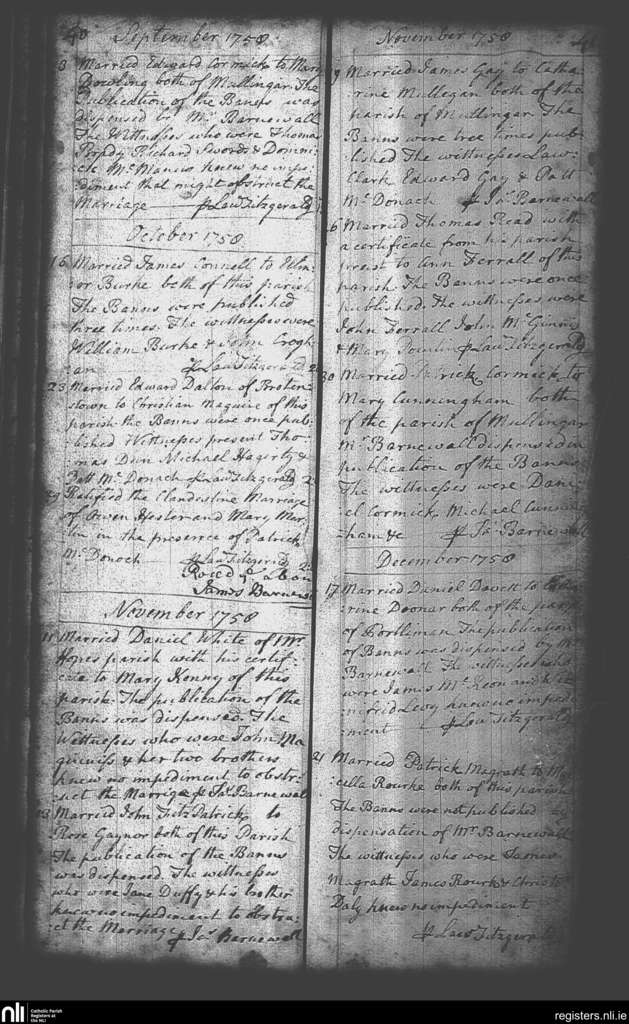 40 September 1758
3 Married Edward Cormick to Mary
Dowling both of Mullingar The
Publication of the Banns was
dispensed by Mr. Barnewall
The Wittnesses who were Thomas
Richard Swords & Domni-
ck McManus knew no impe-
diment that might obstruct the
Marriage Law: Fitzgerald
October 1758
16 Married James Connell to Elin-
or Burke both of this parish
The Banns were published
three times. The wittnesses were
William Burke & John Crogh-
an Law: Fitzgerald
23 Married Edward Dalton of
-stown to Christian Maguire of this
parish the Banns were once pub-
lished Wittnesses present Tho-
mas Dun Michael Hagerty &
Patt McDonach Law Fitzgerald
29 Ratified the Clandestine Marriage
of Owen and Mary Mar-
tin in the presence of Patrick
McDonoch Law Fitzgerald
James Barnewall
November 1758
11 Married Daniel White of Mr
Hopes parish with his certif-
cate to Mary Kenny of this
parish. The publication of the
Banns was dispensed. The
Wittnesses who were John Ma-
guiniss & her two brothers
knew no impediment to obstr-
uct the Marrige Js. Barnewall
13 Married John FitzPatrick to
Rose Gaynor both of this Parish
The publication of the Banns
was dispensed. The wittnesses
who were Jane Duffy & his brother
knew no impediment to obstru-
ct the Marriage Jas Barnewall
November 1758
Married James Gay to Catha-
rine Mullegan both of the
parish of Mullingar The
Banns were tree times pub-
lished The wittnesses Law:
Clark Edward Gay & Patt
McDonach Jas. Barnewall
Married Thomas Read with
a certificate from his parish
preest to Ann Ferrall of this
parish. The Banns were once
published. The wittnesses were
John Ferrall John McGinnis
& Mary Law Fitzgerald
30 Married Patrick Cormick to
Mary Cunningham both
of the parish of Mullingar
Mr Barnewall dispensed in
publication of the Banns
The wittnesses were Dani-
el Cormick, Michael Cunning-
ham &c Js: Barnewall
December 1758
17 Married Daniel to
-rine Doonar both of the parish
of Portliman The publication
of Banns was dispensed by Mr
Barnewall. The wittnesses who
were James McKeon and
Levy knew no imped-
iment Law: Fitzgerald
21 Married Patrick Magrath to
-cella Rourke both of this parish
The Banns were not published by
dispensation of Mr Barnewall
The wittnesses who were James
Magrath James Rourk & Christo
Daly knew no impediment
Law Fitzgerald
nli Catholic Parish
Registers at
the NLI
registers.nli.ie